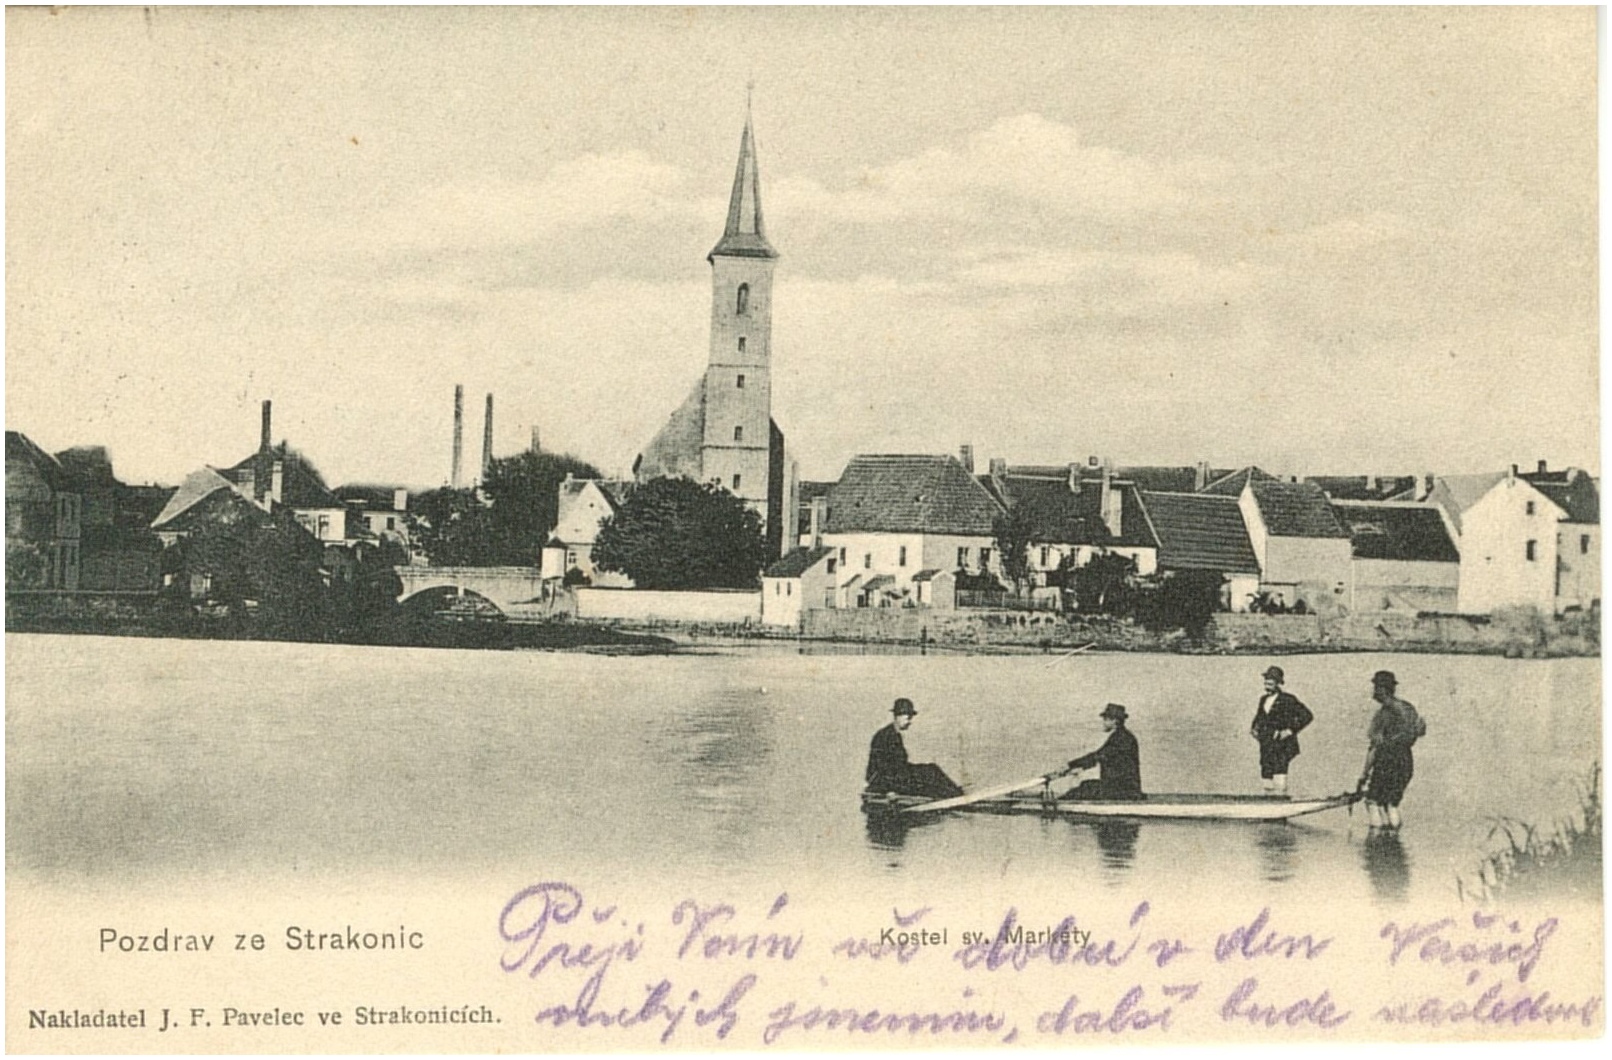 Pozdrav ze Strakonic
Kostel sv. Markéty
Nakladatel J. F. Pavelec ve Strakonicích.
Přeji Vám vše dobré v den Vašich
milých jmenin, další bude následovat